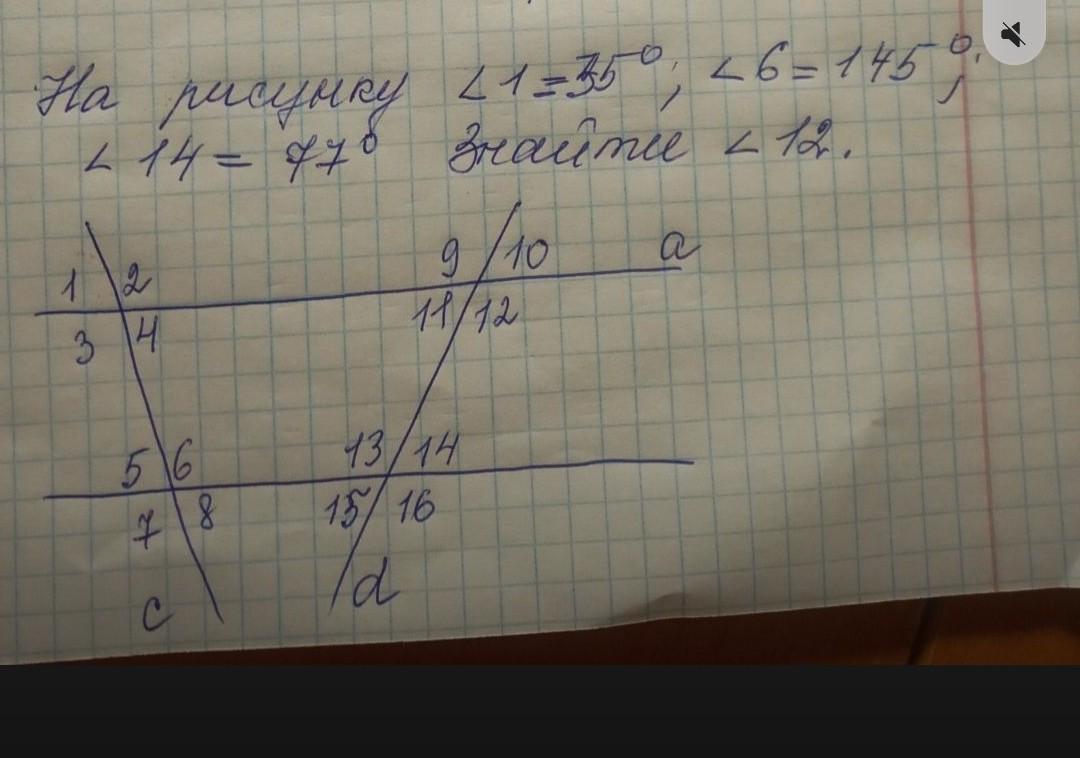 На рисунку ∠1=35°; ∠6=145°;
∠14= 77° Знайти ∠12.
9 10 a
1 2
11 12
3 4
13 14
5 6
15 16
7 8
d
c